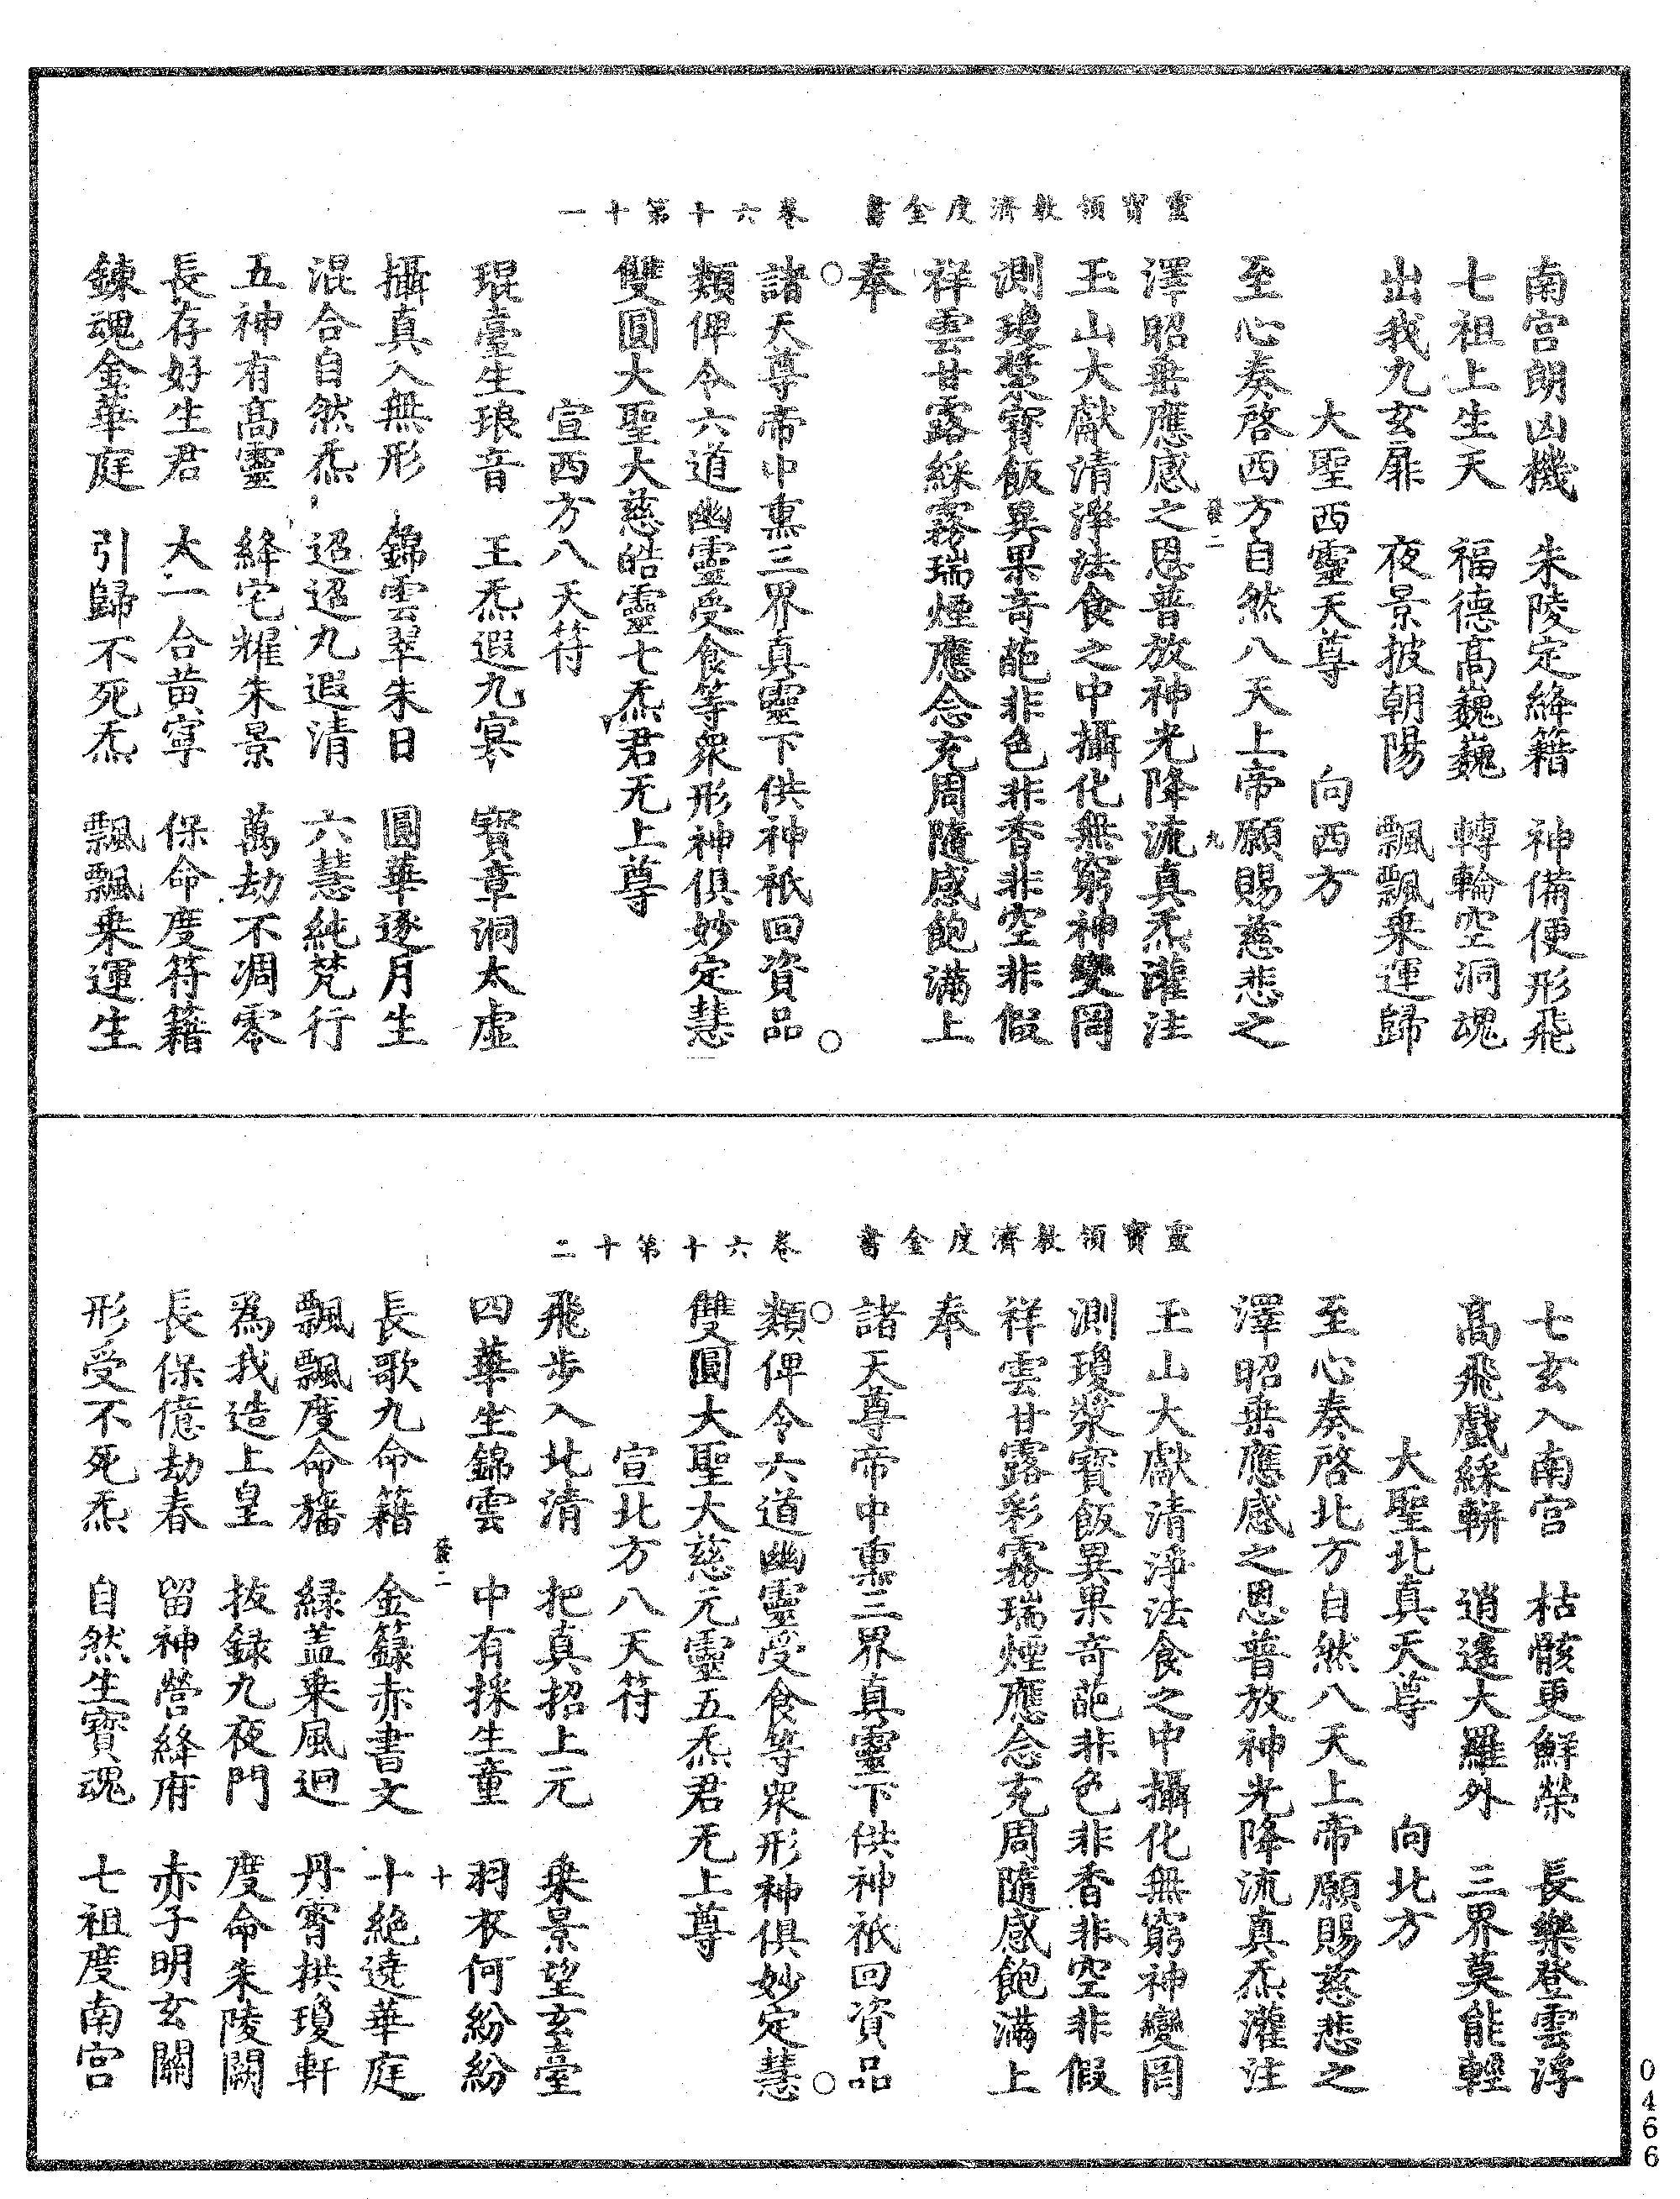 靈寶領教濟度金書　卷六十第十一
南宮朗凶機　朱陵定絳籍　神備便形飛
七祖上生天　福德高巍巍　轉輪空洞魂
出我九玄扉　夜景披朝陽　飄飄乗運歸
大聖西靈天尊　向西方
至心奏啓西方自然八天上帝願賜慈悲之
二　九
澤昭垂應感之恩普放神光降流真炁灌注
玉山大獻清淨法食之中攝化無窮神變罔
測瓊漿寶飯異果奇葩非色非香非空非假
祥雲甘露綵霧瑞煙應念充周隨感飽滿上
奉
○　○
諸天尊帝中熏三界真靈下供神祇回資品
類俾令六道幽靈受食等眾形神俱妙定慧
雙圓大聖大慈皓靈七炁君无上尊
宣西方八天符
琨臺生琅音　王炁遐九寞　寶章洞太虛
攝真入無形　錦雲翠朱日　圓華逐月生
混合自然炁　迢迢九遐清　六慧純梵行
五神有高靈　絳宅耀朱景　萬劫不凋零
長存好生君　大一合黃寧　保命度符籍
鍊魂金華庭　引歸不死炁　飄飄乗運生
靈寶領教濟度金書　卷六十第十二
七玄入南宮　枯骸更鮮榮　長樂登雲浮
高飛戲綵軿　逍遙大羅外　三界莫能輕
大聖北真天尊　向北方
至心奏啓北方自然八天上帝願賜慈悲之
澤昭垂應感之恩普放神光降流真炁灌注
王山大獻清淨法食之中攝化無窮神變罔
測瓊漿寶飯異果奇葩非色非香非空非假
祥雲甘露彩霧瑞煙應念充周隨感飽滿上
奉
諸天尊帝中熏三界真靈下供神祇回資品
○　○
類俾令六道幽靈受食等眾形神俱妙定慧
雙圓大聖大慈元靈五炁君无上尊
宣北方八天符
飛步入北清　把真招上元　乗景望玄臺
四華生錦雲　中有採生童　羽衣何紛紛
二　十
長歌九命籍　金籙赤書文　十絕遶華庭
飄飄度命旛　緑蓋乗風迴　丹霄拱瓊軒
為我造上皇　拔録九夜門　度命朱陵闕
長保億劫春　留神營絳府　赤子明玄關
形受不死炁　自然生寶魂　七祖度南宮
0466